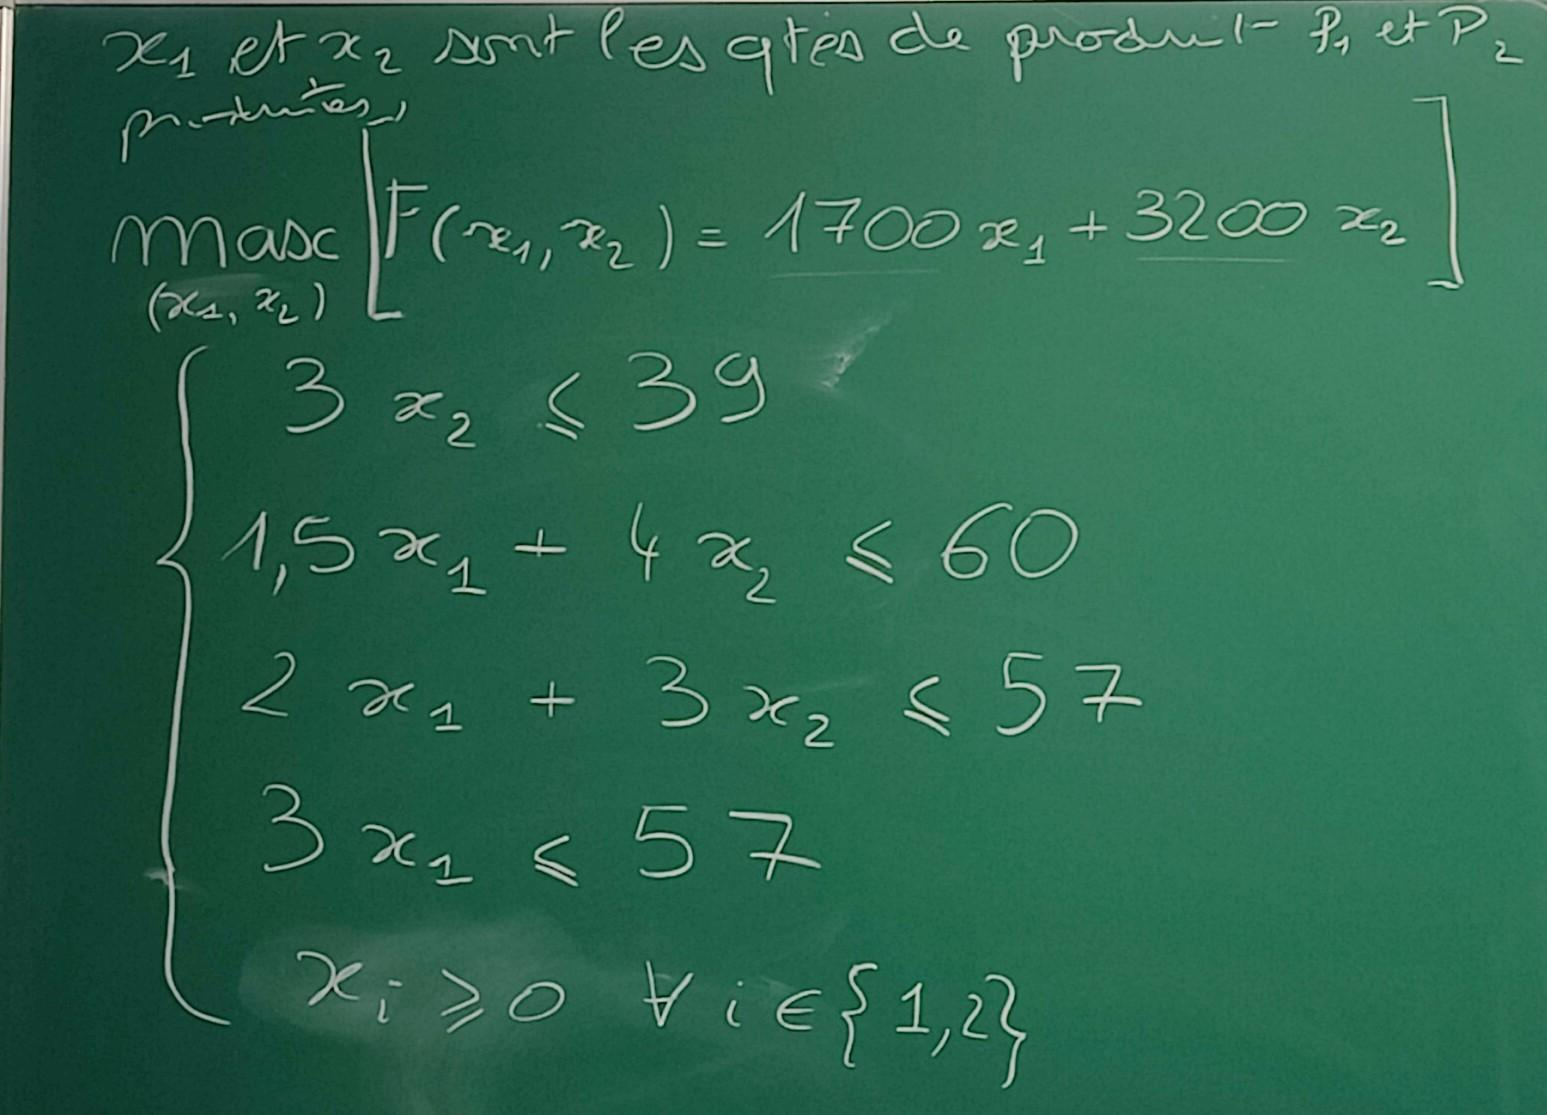 x₁ et x₂ sont les qtés de produit P₁ et P₂
produites,
max [F(x₁, x₂) = 1700 x₁ + 3200 x₂]
(x₁, x₂)
{ 3 x₂ ⩽ 39
1,5 x₁ + 4 x₂ ⩽ 60
2 x₁ + 3 x₂ ⩽ 57
3 x₁ ⩽ 57
xᵢ ⩾ 0 ∀ i ∈ {1,2}